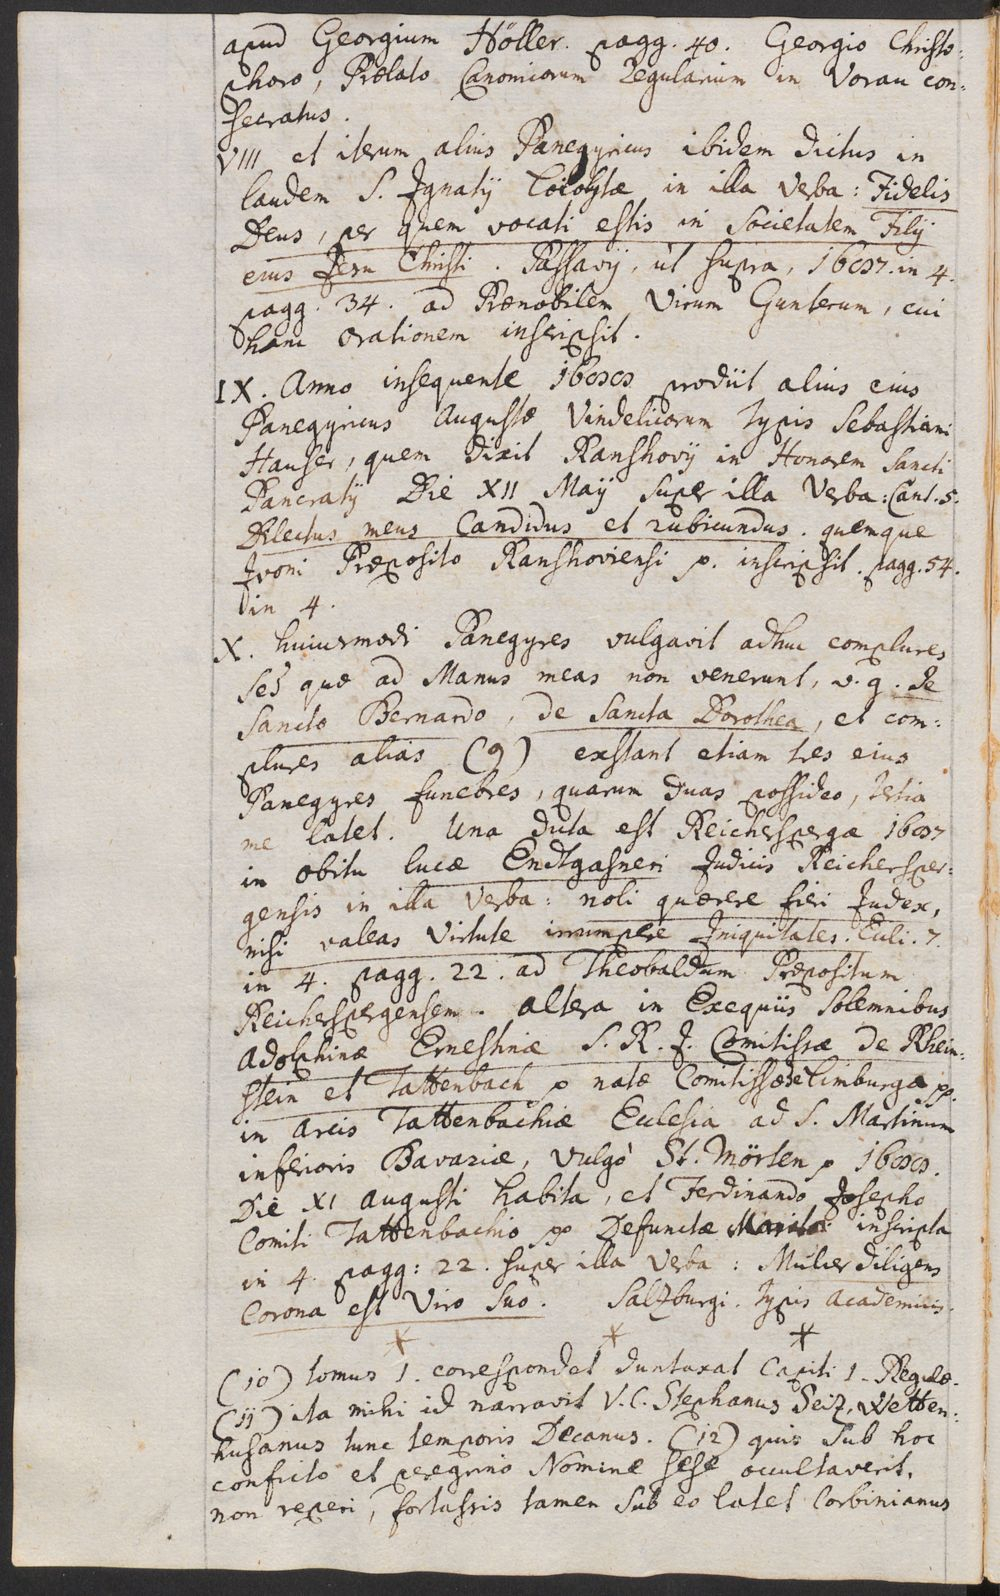 apud Georgium Höller. pagg. 40. Georgio Christo:
phoro, Prælato Canonicorum Regularium in Vorau con:
secratus.
VIII et iterum alius Panegyricus ibidem dictus in
laudem S. Ignatij Loiolytæ in illa Verba: Fidelis
Deus, per quem vocati estis in Societatem Filij
eius Jesu Christi. Passavij, ut supra, 1687. in 4.
pagg. 34. ad Prænobilem Virum Gunterum, cui
hanc orationem inscripsit.
IX. Anno insequente 1688 prodiit alius eius
Panegyricus Augustæ Vindelicorum Typis Sebastiani
Hauser, quem dixit Ranshovij in Honorem Sancti
Pancratij Die XII Maij super illa Verba: Cant. 5.
Dilectus meus Candidus et rubicundus. quemque
Ivoni Præposito Ranshoviensi p. inscripsit. pagg. 54.
in 4.
X. huiusmodi Panegyres vulgavit adhuc complures
sed quæ ad Manus meas non venerunt, v. g. de
Sancto Bernardo, de Sancta Dorothea, et com:
plures alias (9) exstant etiam tres eius
Panegyres funebres, quarum duas possideo, tertia
me latet. Una dicta est Reicherspergæ 1687
in obitu Lucæ Endtgasneri Judicis Reichersper:
gensis in illa Verba: noli quærere fieri Judex,
nisi valeas Virtute irrumpere Iniquitates. Ecli. 7.
in 4. pagg. 22. ad Theobaldum Præpositum
Reicherspergensem. altera in Exequiis Solemnibus
Adolphinæ Ernestinæ S. R. J. Comitissæ de Rhein:
stein et Tattenbach p natæ Comitissæ de Limburga pp.
in Arcis Tattenbachiæ Ecclesia ad S. Martinum
inferioris Bavariæ, vulgò St. Mörten p 1688.
Die XI augusti habita, et Ferdinando Josepho
Comiti Tattenbachio pp Defunctæ Marito inscripta
in 4. pagg: 22. super illa Verba: Mulier diligens
Corona est Viro Suo. Salzburgi. Typis Academicis.
* * *
(10) tomus 1. correspondet duntaxat Capiti 1. Regulæ.
(11) ita mihi id narravit V. C. Stephanus Seiz, Wetten:
husanus tunc temporis Decanus. (12) quis sub hoc
conficto et peregrino Nomine sese occultaverit,
non reperi, fortassis tamen sub eo latet Corbinianus